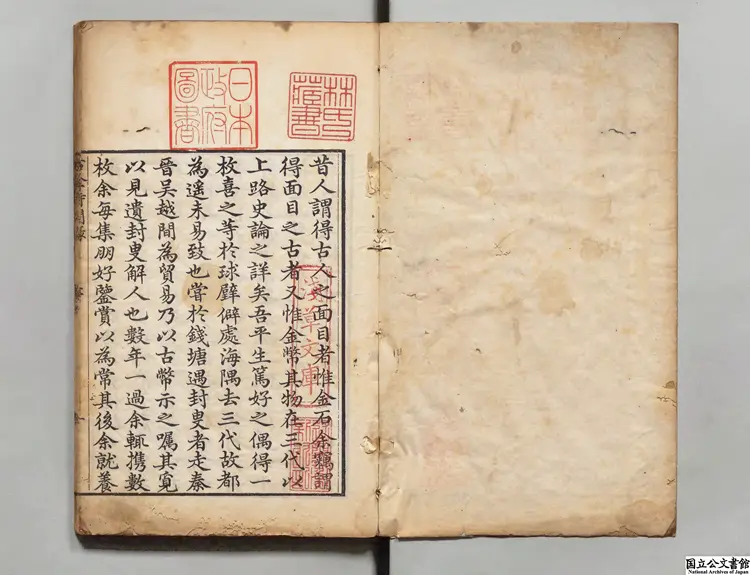 林氏
藏書
日本
政府
圖書
昔人謂得古人之面目者惟金石余竊謂
得面目之古者又惟金幣其物在三代以
上路史論之詳矣吾平生篤好之偶得一
枚喜之等於球璧僻處海隅去三代故都
為遥未易致也嘗於錢塘遇封叟者走秦
晉吳越間為貿易乃以古幣示之囑其覓
以見遺封叟解人也數年一過余輒携數
枚余每集朋好鑒賞以為常其後余就養
淺草文庫
国立公文書館
National Archives of Japan